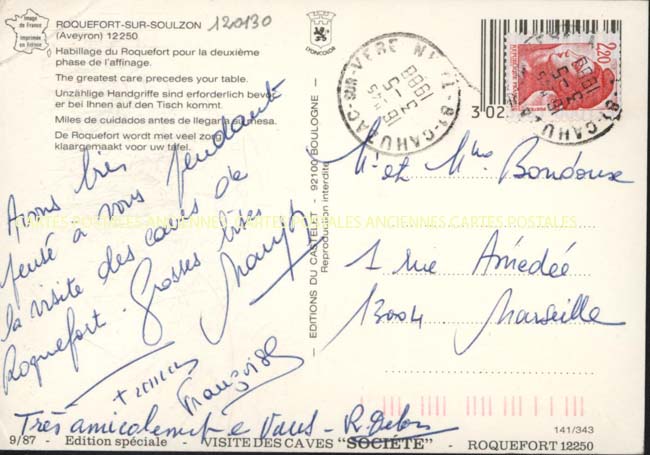 Image
de France
Imprimée
en Relisse
ROQUEFORT-SUR-SOULZON
(Aveyron) 12250
120130
Habillage du Roquefort pour la deuxième
phase de l'affinage.
The greatest care precedes your table.
Unzählige Handgriffe sind erforderlich bevor
er bei Ihnen auf den Tisch kommt.
Miles de cuidados antes de llegar a su mesa.
De Roquefort wordt met veel zorg
klaargemaakt voor uw tafel.
LYONCOLOR
EDITIONS DU CASTELET - 92100 BOULOGNE
Reproduction interdite
81-CAHUZAC-SUR-VERE
16 45
3-5
1988
2,20
3 02
Avons très pendant
pensé à vous
la visite des caves de
Roquefort. Grosses bises
Françoise
Très amicalement e Vous - R.
Mr et Mme Bondoux
1 rue Amédée
13004 Marseille
CARTES POSTALES ANCIENNES CARTES POSTALES ANCIENNES CARTES POSTALES
141/343
9/87 - Edition spéciale - VISITE DES CAVES "SOCIÉTÉ" - ROQUEFORT 12250